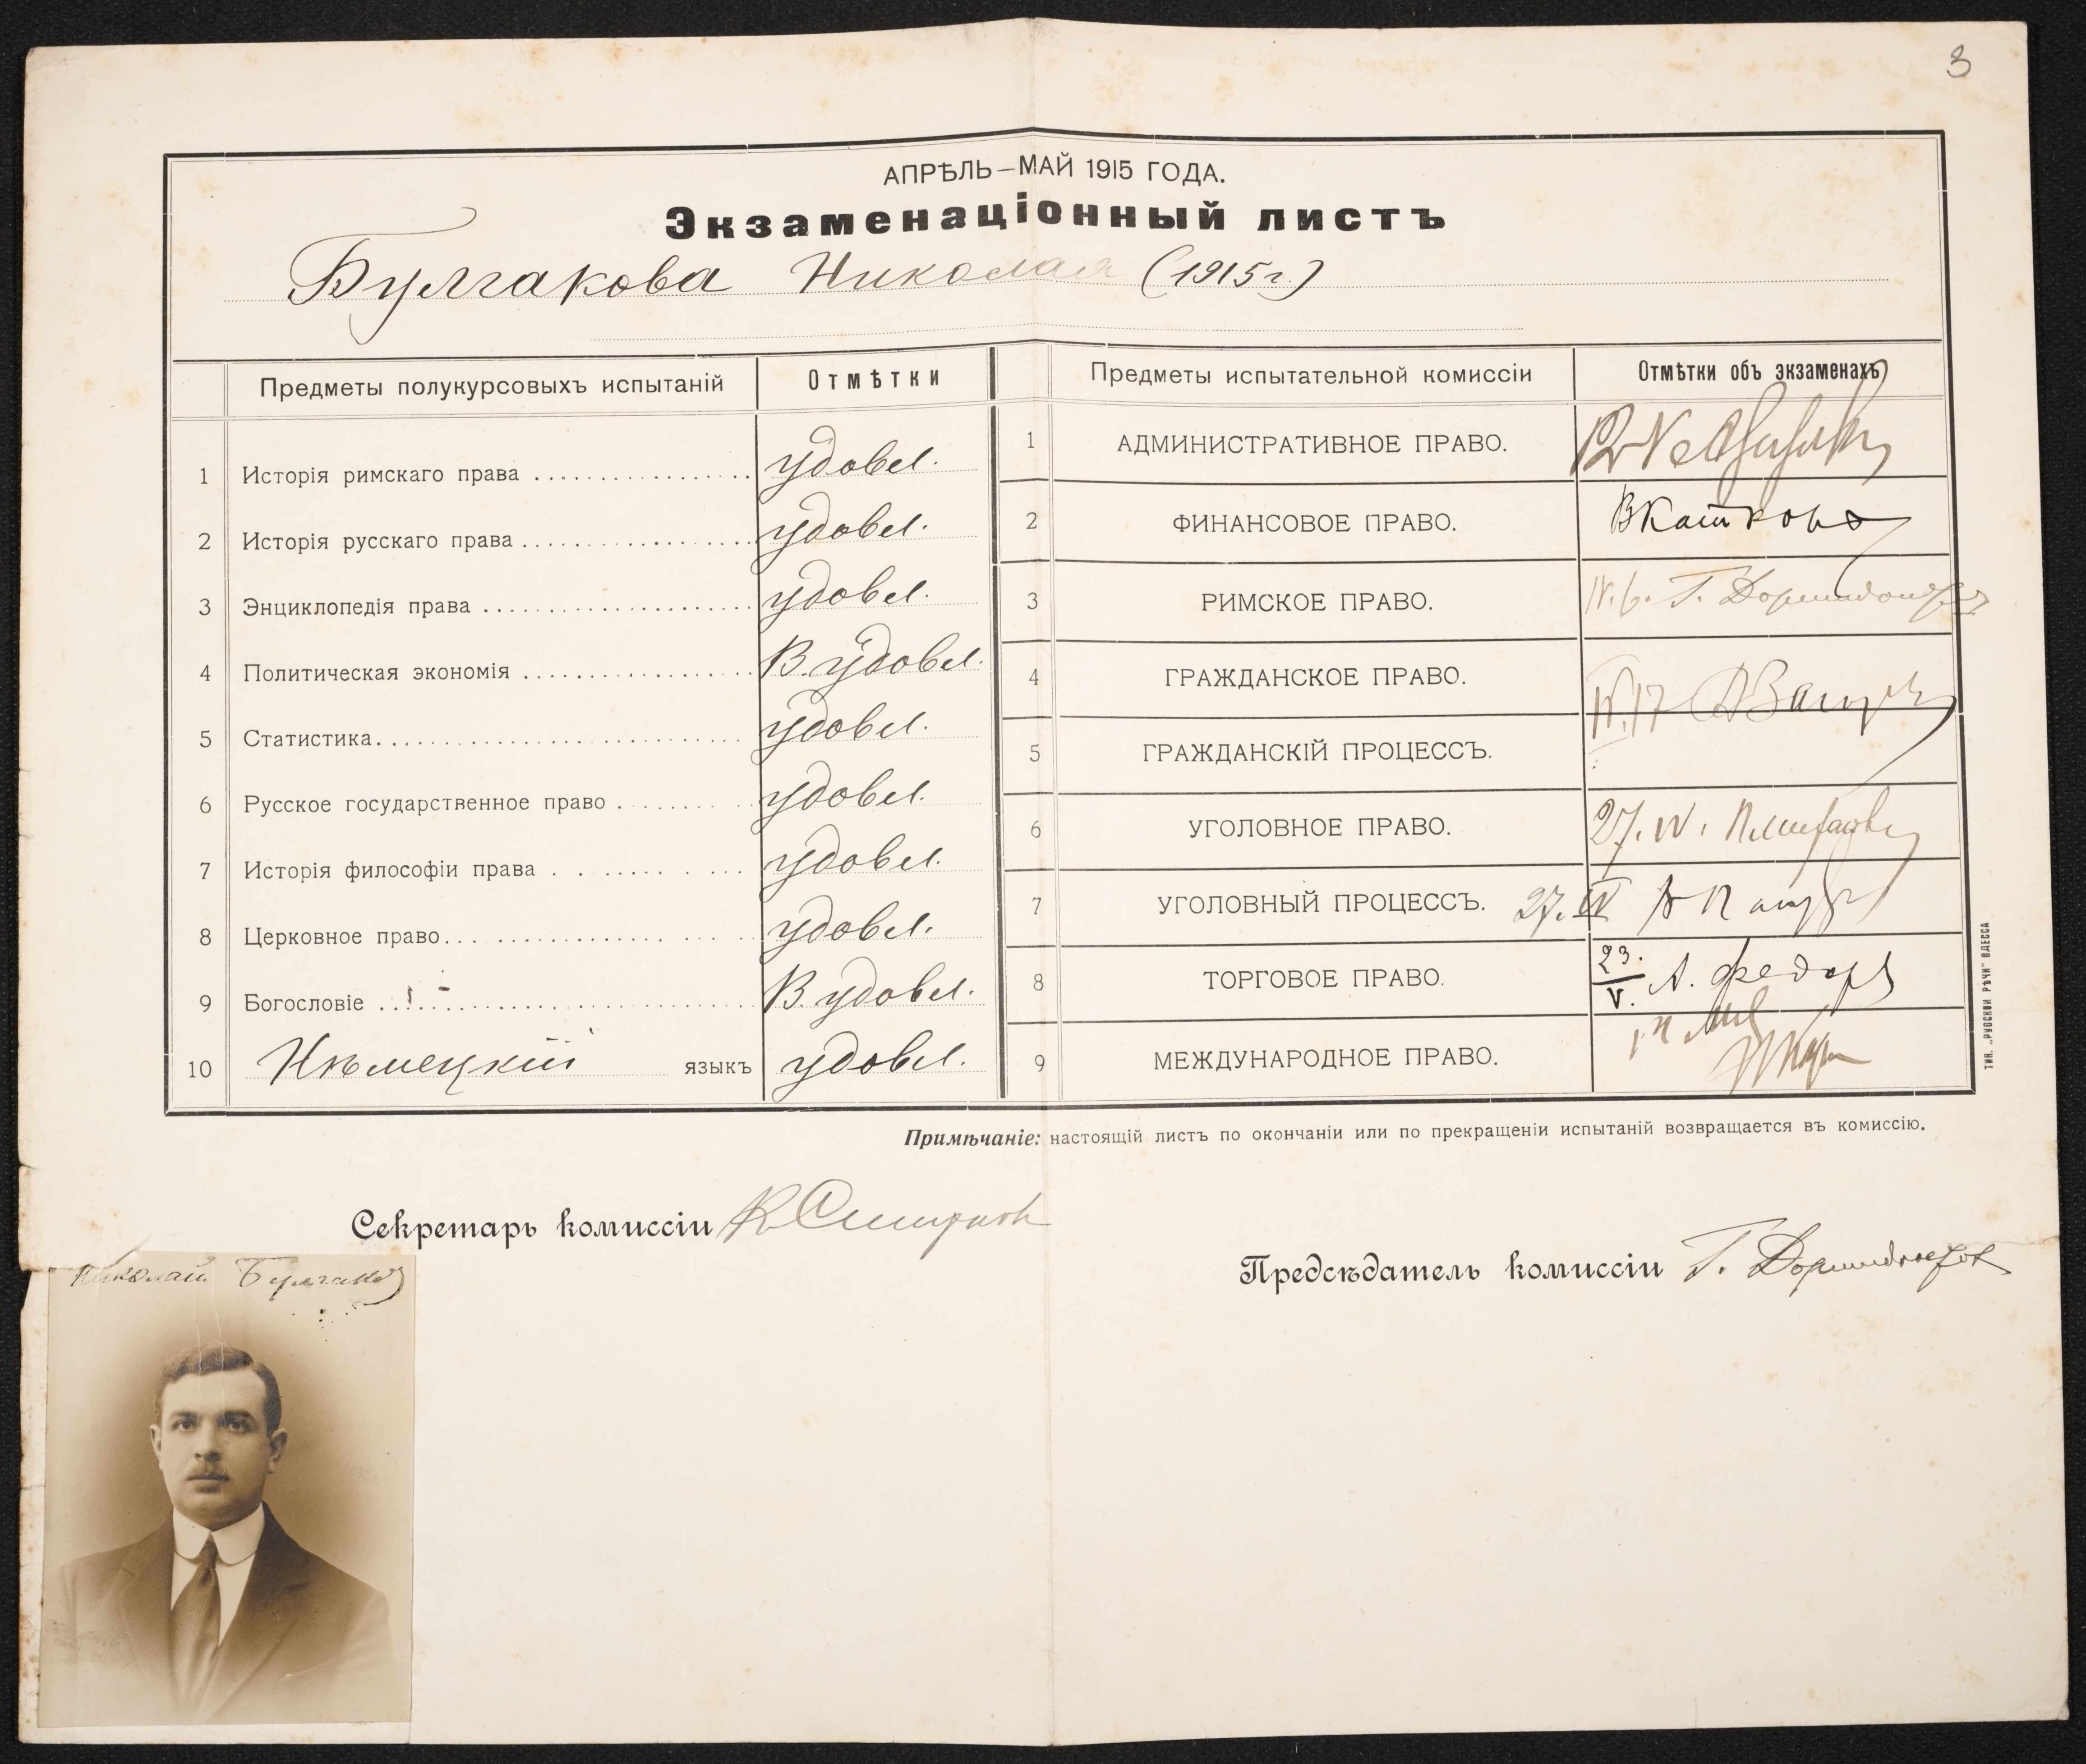 3
АПРѢЛЬ—МАЙ 1915 ГОДА.
Экзаменаціонный листъ
Булгакова Николая (1915 г.)
Предметы полукурсовыхъ испытаній
Отмѣтки
1 Исторія римскаго права удовл.
2 Исторія русскаго права удовл.
3 Энциклопедія права удовл.
4 Политическая экономія В. удовл.
5 Статистика удовл.
6 Русское государственное право удовл.
7 Исторія философіи права удовл.
8 Церковное право удовл.
9 Богословіе В. удовл.
10 Нѣмецкій языкъ удовл.
Предметы испытательной комиссіи
Отмѣтки объ экзаменахъ
1 АДМИНИСТРАТИВНОЕ ПРАВО.
2 ФИНАНСОВОЕ ПРАВО.
3 РИМСКОЕ ПРАВО. Г. Доримедонтов
4 ГРАЖДАНСКОЕ ПРАВО.
5 ГРАЖДАНСКІЙ ПРОЦЕССЪ.
6 УГОЛОВНОЕ ПРАВО. 27. IV.
7 УГОЛОВНЫЙ ПРОЦЕССЪ. 27. IV
8 ТОРГОВОЕ ПРАВО. 23. V. А. Федоров
9 МЕЖДУНАРОДНОЕ ПРАВО.
ТИП. „РУССКОЙ РѢЧИ" ОДЕССА
Примѣчаніе: настоящій листъ по окончаніи или по прекращеніи испытаній возвращается въ комиссію.
Секретарь комиссіи К Смирнов
Предсѣдатель комиссіи Г. Доримедонтов
Николай Булгаков